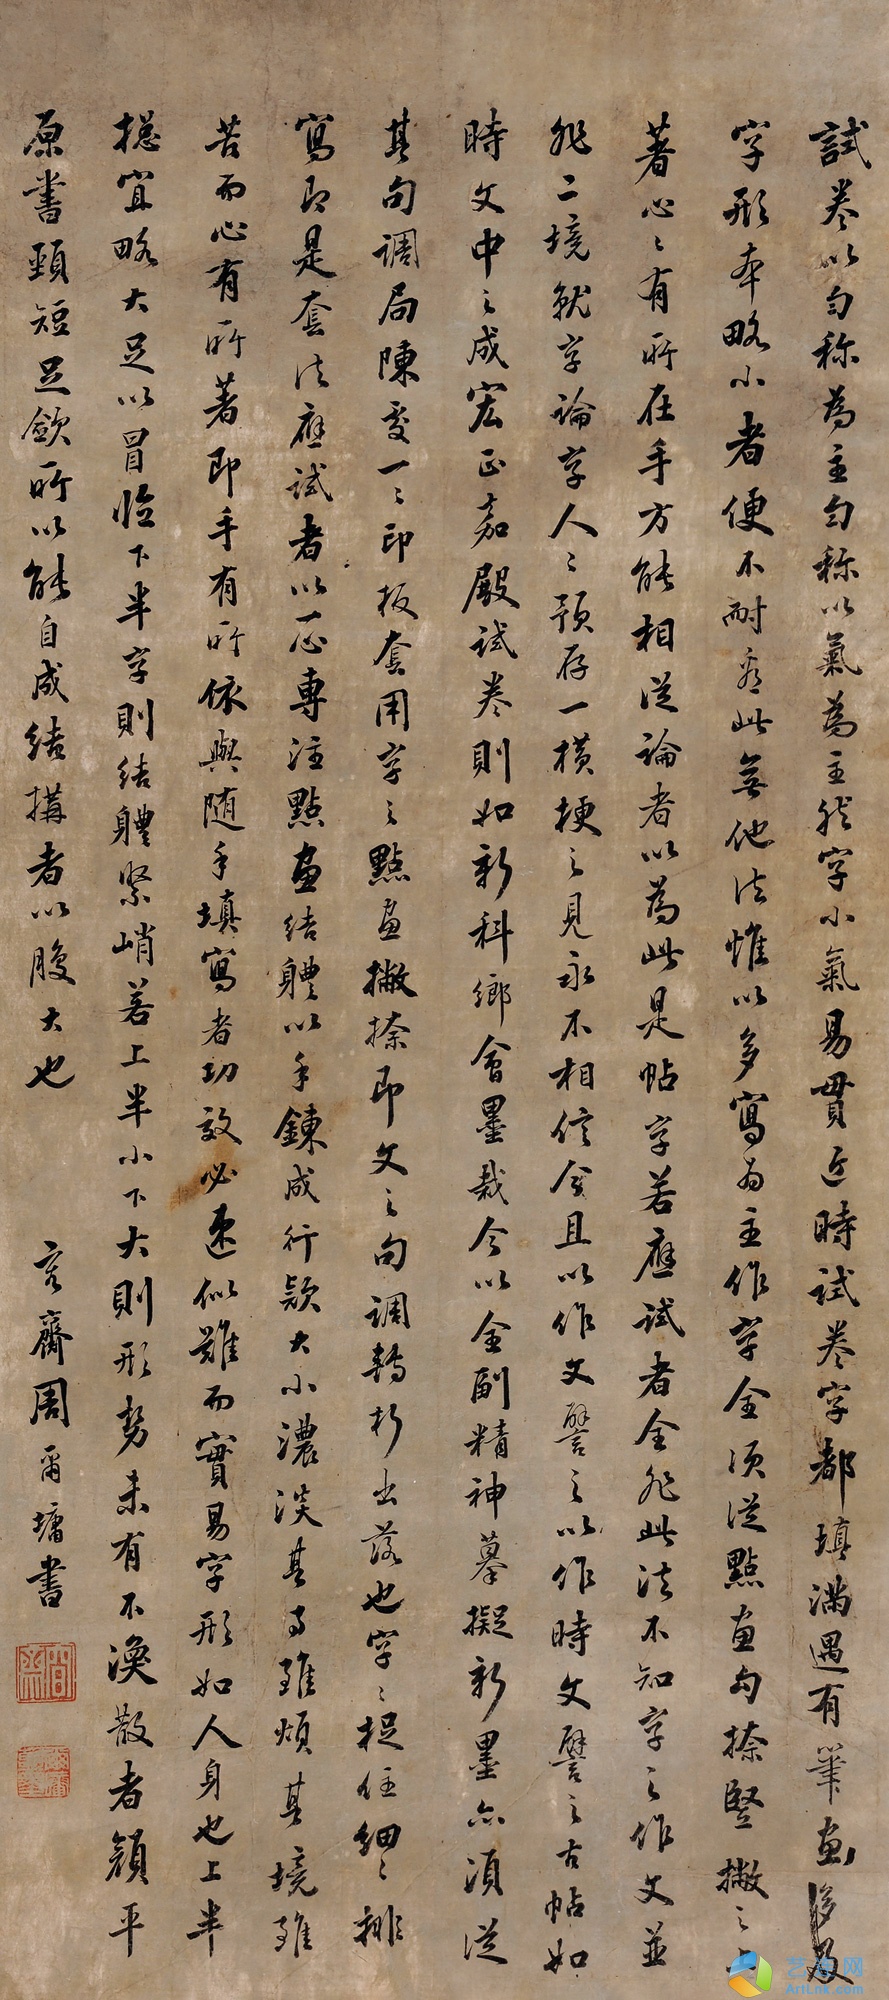 試卷以勻称為主勻称以氣為主然字小氣易貫近時試卷字都填滿遇有筆畫多及
字形本略小者便不耐看此無他法惟以多寫為主作字全須從點畫勾捺豎撇之
著心心有所在手方能相從論者以為此是帖字若應試者全非此法不知字之作文並
非二境就字論字人人預存一橫梗之見永不相信今且以作文譬之以作時文譬之古帖如
時文中之成宏正嘉殿試卷則如新科鄉會墨裁今以全副精神摹擬新墨亦須從
其句調局陳變一一印板套用字之點畫撇捺即文之句調轉折出落也字字捉住細細排
寫即是套法應試者以心專注點畫結體以手鍊成行款大小濃淡其事雖煩其境雖
苦而心有所著即手有所依與隨手填寫者功效必速似難而實易字形如人身也上半
總宜略大足以冒臨下半字則結體緊峭若上半小下大則形勢未有不渙散者顏平
原書頸短足斂所以能自成結搆者以腹大也
容齋周爾墉書
艺术网
ArtLnk.com